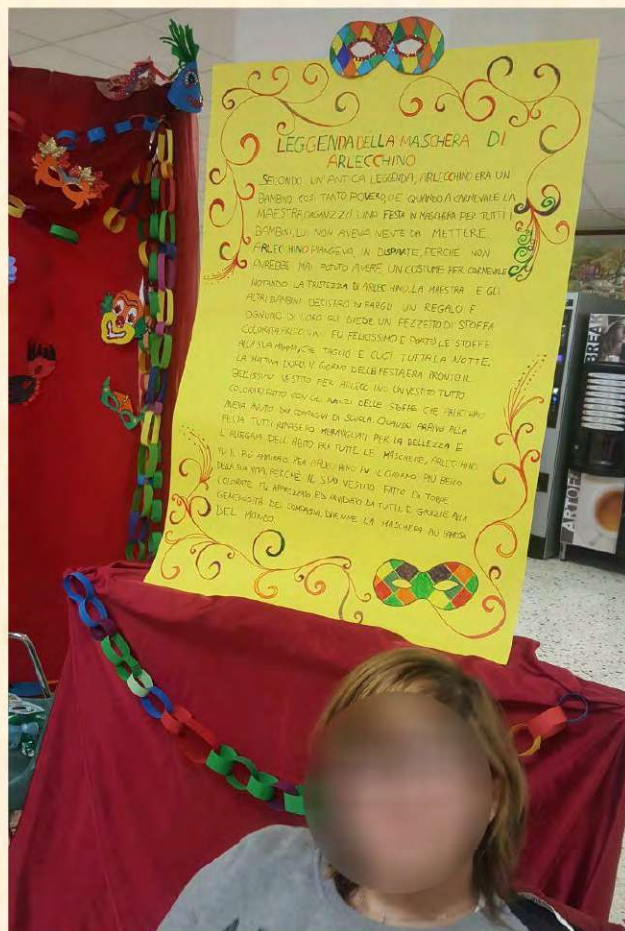 LEGGENDA DELLA MASCHERA DI
ARLECCHINO
SECONDO UN'ANTICA LEGGENDA, ARLECCHINO ERA UN
BAMBINO COSÌ TANTO POVERO, CHE QUANDO A CARNEVALE LA
MAESTRA ORGANIZZÒ UNA FESTA IN MASCHERA PER TUTTI I
BAMBINI, LUI NON AVEVA NIENTE DA METTERE.
ARLECCHINO PIANGEVA, IN DISPARTE, PERCHÉ NON
AVREBBE MAI POTUTO AVERE UN COSTUME PER CARNEVALE
NOTANDO LA TRISTEZZA DI ARLECCHINO, LA MAESTRA E GLI
ALTRI BAMBINI DECISERO DI FARGLI UN REGALO E
OGNUNO DI LORO GLI DIEDE UN PEZZETTO DI STOFFA
COLORATA FU FELICISSIMO E PORTÒ LE STOFFE
ALLA SUA MAMMA, CHE TAGLIÒ E CUCÌ TUTTA LA NOTTE.
LA MATTINA DOPO, IL GIORNO DELLA FESTA ERA PRONTO IL
BELLISSIMO VESTITO PER UN VESTITO TUTTO
COLORATO FATTO CON GLI AVANZI DELLE STOFFE CHE ARLECCHINO
AVEVA AVUTO DAI COMPAGNI DI SCUOLA. QUANDO ARRIVÒ ALLA
FESTA TUTTI RIMASERO MERAVIGLIATI PER LA BELLEZZA E
L'ALLEGRIA DELL'ABITO FRA TUTTE LE MASCHERE, ARLECCHINO
FU IL PIÙ AMMIRATO. PER ARLECCHINO FU IL GIORNO PIÙ BELLO
DELLA SUA VITA, PERCHÉ IL SUO VESTITO FATTO DI TOPPE
COLORATE FU APPREZZATO ED INVIDIATO DA TUTTI E GRAZIE ALLA
GENEROSITÀ DEI COMPAGNI, DIVENNE LA MASCHERA PIÙ FAMOSA
DEL MONDO.
BREAK